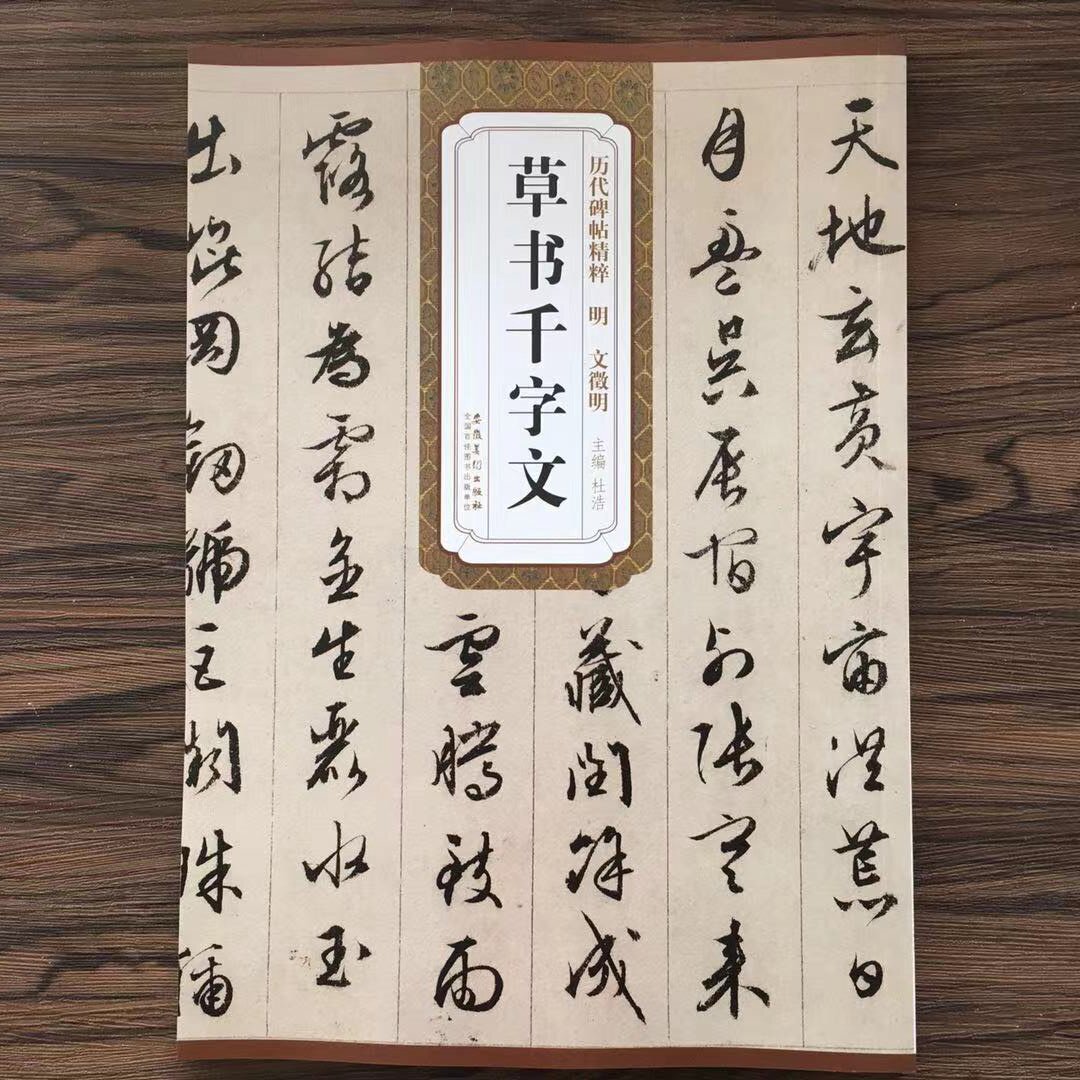 天地玄黄宇宙洪荒日
月盈昃辰宿列張寒来
历代碑帖精粹 明 文徵明
主编 杜浩
草书千字文
安徽美术出版社
全国百佳图书出版单位
藏閏餘成
雲騰致雨
露結為霜金生麗水玉
出崑岡劔號巨闕珠稱